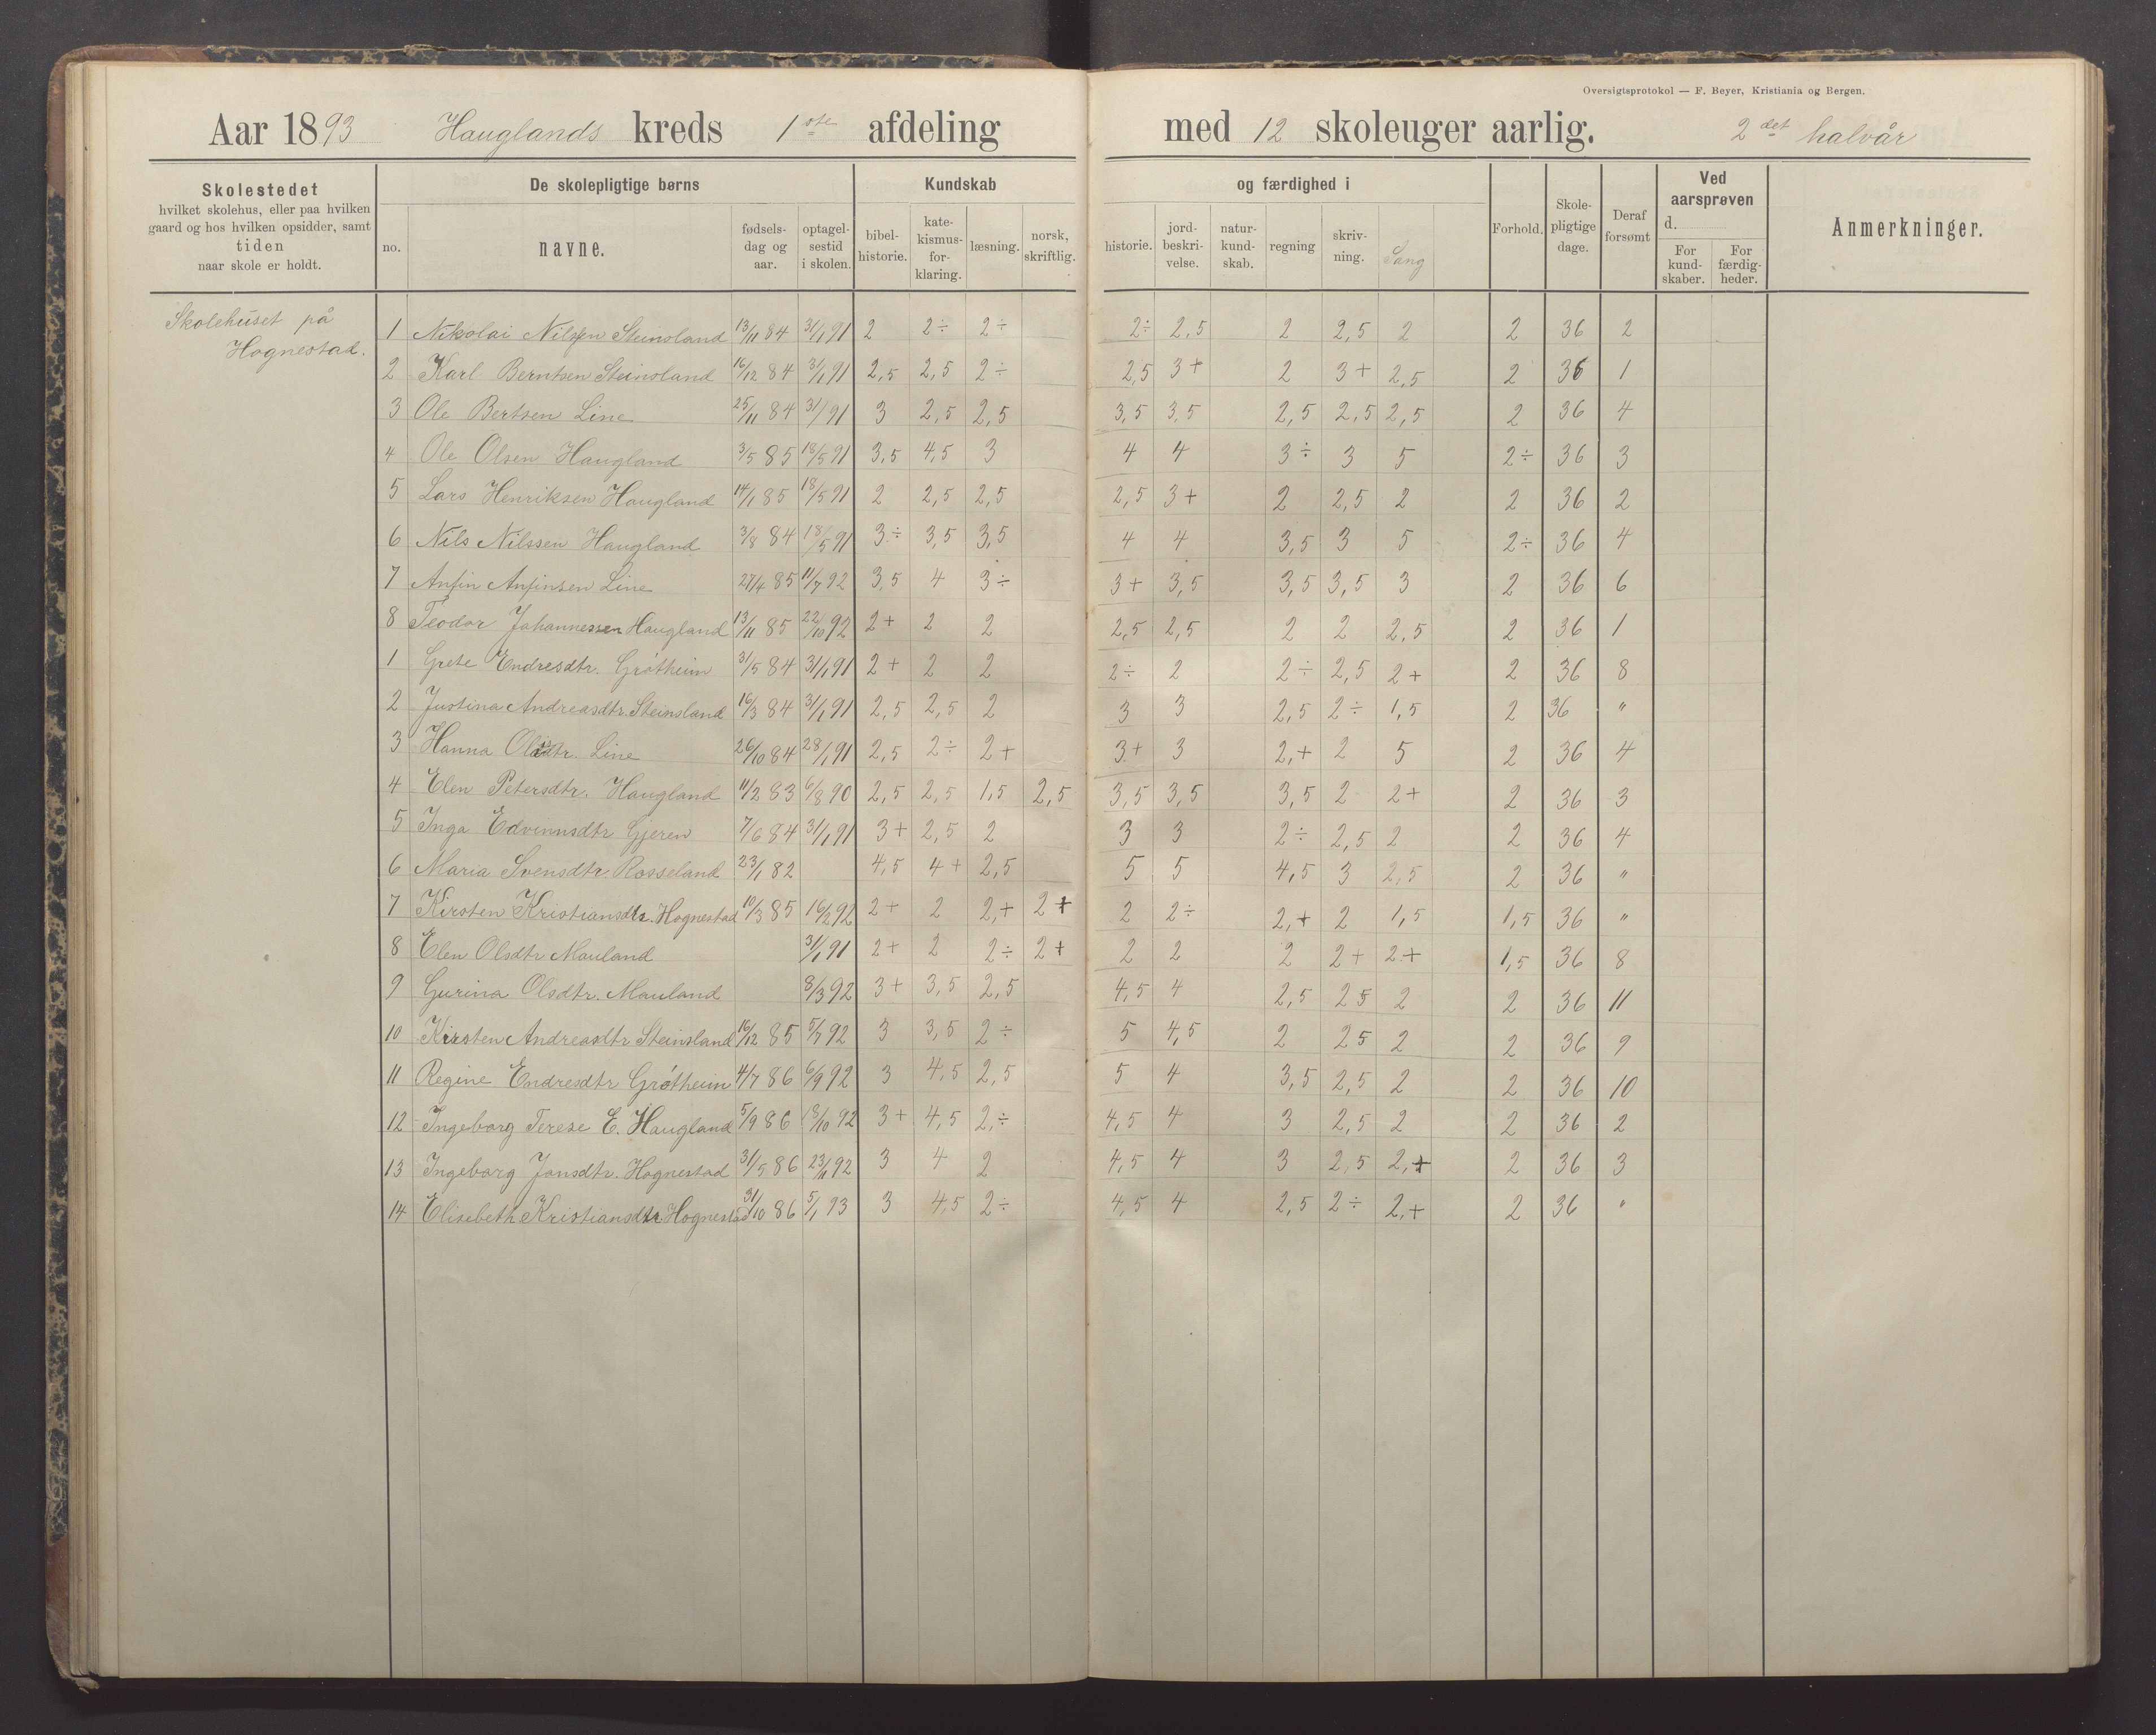 Oversigtsprotokol — F. Beyer, Kristiania og Bergen.
Aar 1893 Hauglands kreds 1ste afdeling med 12 skoleuger aarlig. 2det halvår
Skolestedet
hvilket skolehus, eller paa hvilken
gaard og hos hvilken opsidder, samt
tiden
naar skole er holdt.
De skolepligtige børns
no. navne. fødsels-dag og aar. optagel-sestid i skolen.
Kundskab og færdighed i
bibel-historie. kate-kismus-for-klaring. læsning. norsk, skriftlig. historie. jord-beskri-velse. natur-kund-skab. regning skriv-ning. Sang
Forhold. Skole-pligtige dage. Deraf forsømt
Ved aarsprøven d.
For kund-skaber. For færdig-heder.
Anmerkninger.
Skolehuset på
Hognestad.
1 Nikolai Nilsen Steinsland 13/11 84 31/1 91 2 2÷ 2÷ 2÷ 2,5 2 2,5 2 2 36 2
2 Karl Berntsen Steinsland 16/12 84 31/1 91 2,5 2,5 2÷ 2,5 3+ 2 3+ 2,5 2 36 1
3 Ole Bertsen Line 25/11 84 31/ 91 3 2,5 2,5 3,5 3,5 2,5 2,5 2,5 2 36 4
4 Ole Olsen Haugland 3/5 85 18/5 91 3,5 4,5 3 4 4 3÷ 3 5 2÷ 36 3
5 Lars Henriksen Haugland 14/1 85 18/5 91 2 2,5 2,5 2,5 3+ 2 2,5 2 2 36 2
6 Nils Nilssen Haugland 3/8 84 18/5 91 3÷ 3,5 3,5 4 4 3,5 3 5 2÷ 36 4
7 Anfin Anfinsen Line 27/4 85 11/7 92 3,5 4 3÷ 3+ 3,5 3,5 3,5 3 2 36 6
8 Teodor Johannessen Haugland 13/11 85 22/10 92 2+ 2 2 2,5 2,5 2 2 2,5 2 36 1
1 Grete Endresdtr. Grótheim 31/5 84 31/1 91 2+ 2 2 2÷ 2 2÷ 2,5 2+ 2 36 8
2 Justina Andreasdtr. Steinsland 16/3 84 31/1 91 2,5 2,5 2 3 3 2,5 2÷ 1,5 2 36 "
3 Hanna Olsdtr. Line 26/10 84 28/1 91 2,5 2÷ 2+ 3+ 3 2,+ 2 5 2 36 4
4 Elen Petersdtr. Haugland 11/2 83 6/8 90 2,5 2,5 1,5 2,5 3,5 3,5 3,5 2 2+ 2 36 3
5 Inga Edvinnsdtr Gjeren 7/6 84 31/1 91 3+ 2,5 2 3 3 2÷ 2,5 2 2 36 4
6 Maria Svensdtr. Rosseland 23/1 82 4,5 4+ 2,5 5 5 4,5 3 2,5 2 36 "
7 Kirsten Kristiansdtr. Hognestad 10/3 85 16/2 92 2+ 2 2,+ 2+ 2 2÷ 2,+ 2 1,5 1,5 36 "
8 Elen Olsdtr Mauland 31/1 91 2+ 2 2÷ 2+ 2 2 2 2+ 2+ 1,5 36 8
9 Gurina Olsdtr. Mauland 8/3 92 3+ 3,5 2,5 4,5 4 2,5 25 2 2 36 11
10 Kirsten Andreasdtr Steinsland 16/12 85 5/7 92 3 3,5 2÷ 5 4,5 2 25 2 2 36 9
11 Regine Endresdtr Grótheim 4/7 86 6/9 92 3 4,5 2,5 5 4 3,5 2,5 2 2 36 10
12 Ingeborg Terese E. Haugland 5/9 86 18/10 92 3+ 4,5 2,÷ 4,5 4 3 2,5 2 2 36 2
13 Ingeborg Jonsdtr. Hognestad 31/5 86 23/11 92 3 4 2 4,5 4 3 2,5 2,+ 2 36 3
14 Elisebeth Kristiansdtr Hognestad 31/10 86 5/1 93 3 4,5 2÷ 4,5 4 2,5 2÷ 2,+ 2 36 "